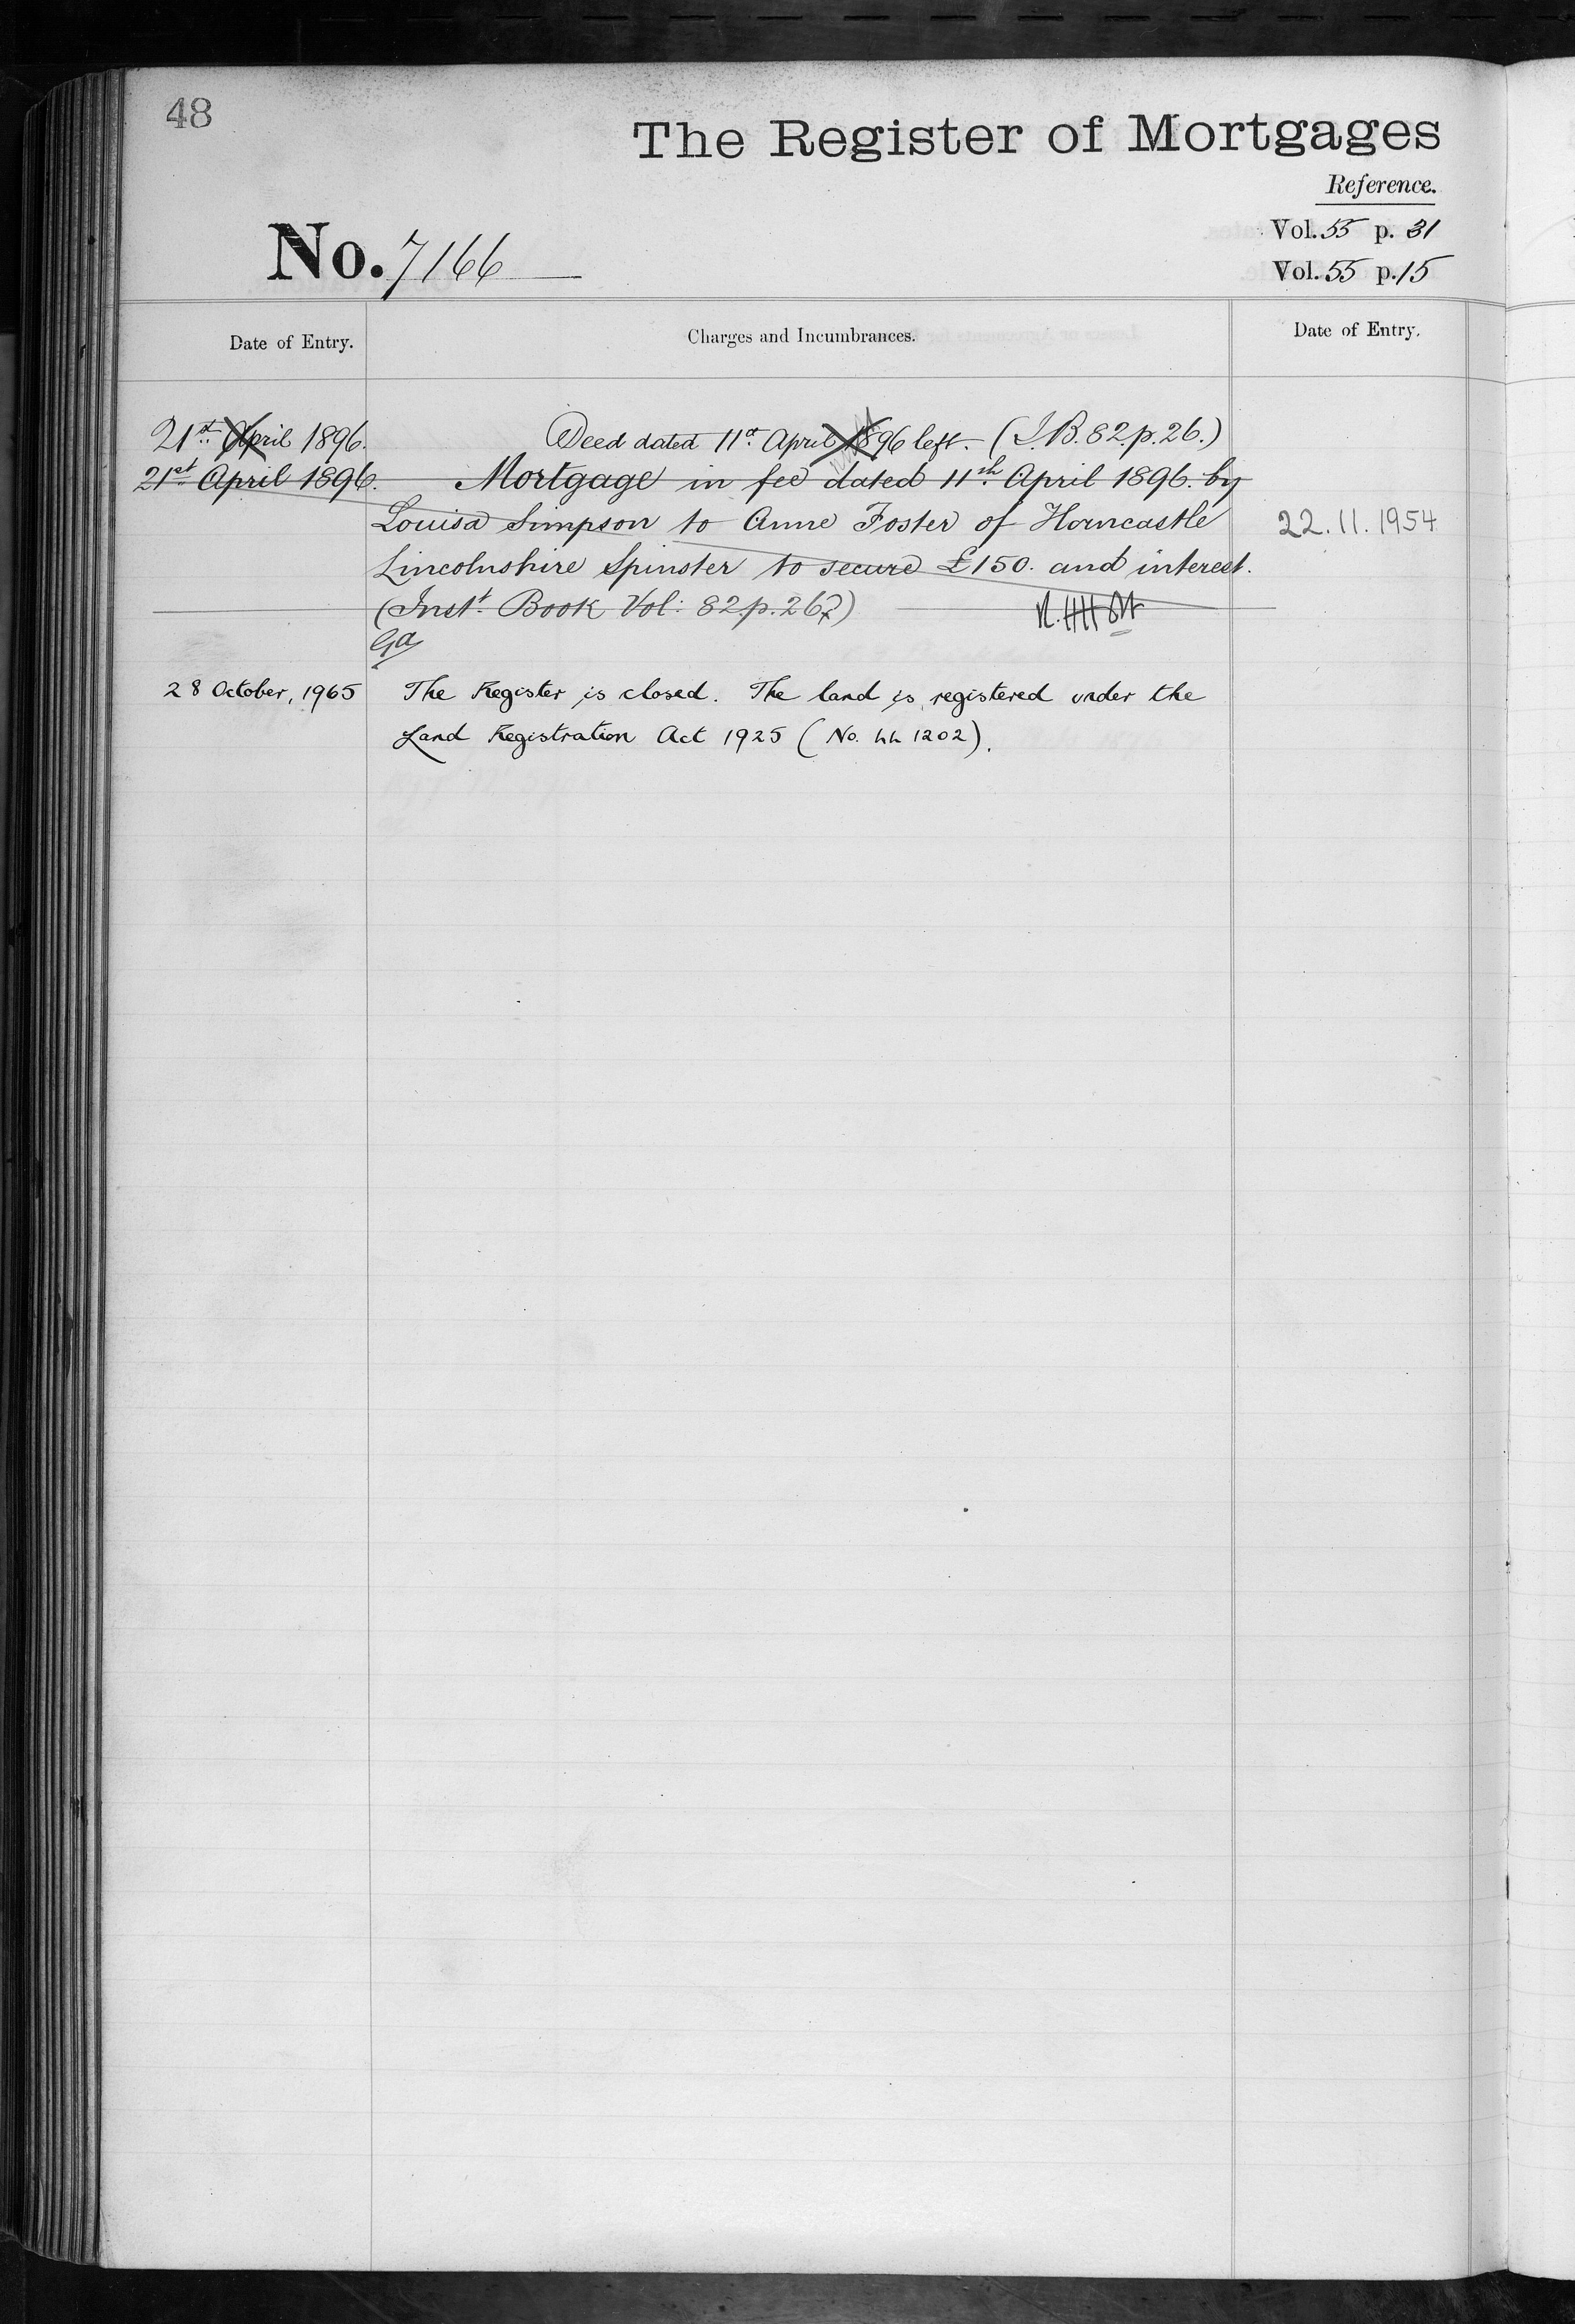 48
The Register of Mortgages
Reference.
Vol. 55 p. 31
No. 7166
Vol. 55 p. 15
Date of Entry.
Charges and Incumbrances.
Date of Entry.
21st April 1896.
Deed dated 11th April 1896 left. (I.B. 82. p. 26.)
21st April 1896.
Mortgage in fee dated 11th April 1896. by
Louisa Simpson to Anne Foster of Horncastle
22.11.1954
Lincolnshire Spinster to secure £150. and interest.
(Inst. Book Vol: 82. p. 267)
28 October, 1965
The Register is closed. The land is registered under the
Land Registration Act 1925 (No. 1202).